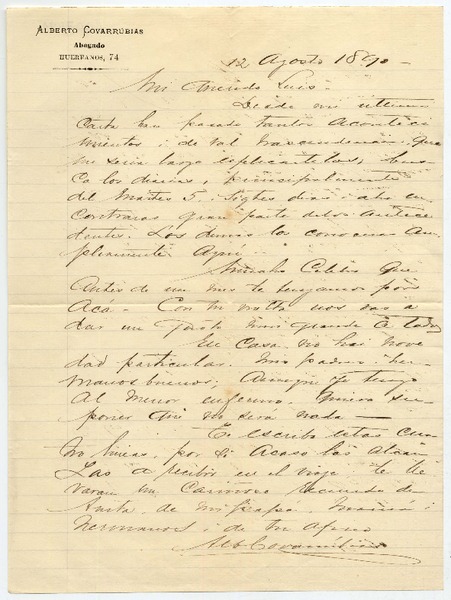 ALBERTO COVARRUBIAS
Abogado
HUERFANOS, 74
12 Agosto 1890
Mi querido Luis:
Desde mi ultima
carta han pasado tantos aconteci
mientos i de tal trascendencia, que
me seria largo esplicartelos; bus
ca los diarios, principalmente
del Martes 5 i sigtes dias i ahi en
contraras gran parte de los antece
dentes. Los demas los conoceras am
pliamente aqui.
Mucho celebro que
antes de un mes te tengamos por
aca. Con tu vuelta nos vas a
dar un gusto mui grande a todos
En casa no hai nove
dad particular. Mis padres i her
manos buenos; aunque yo tengo
al menor enfermo. Quiera
que no será nada
Te escribo estas cua
tro lineas, por si acaso las alcan
zas a recibir en el viaje. Te lle
varan un cariñoso recuerdo de
Anita, de mi papá, mamá i
hermanos i de tu afmo
Alb Covarrubias